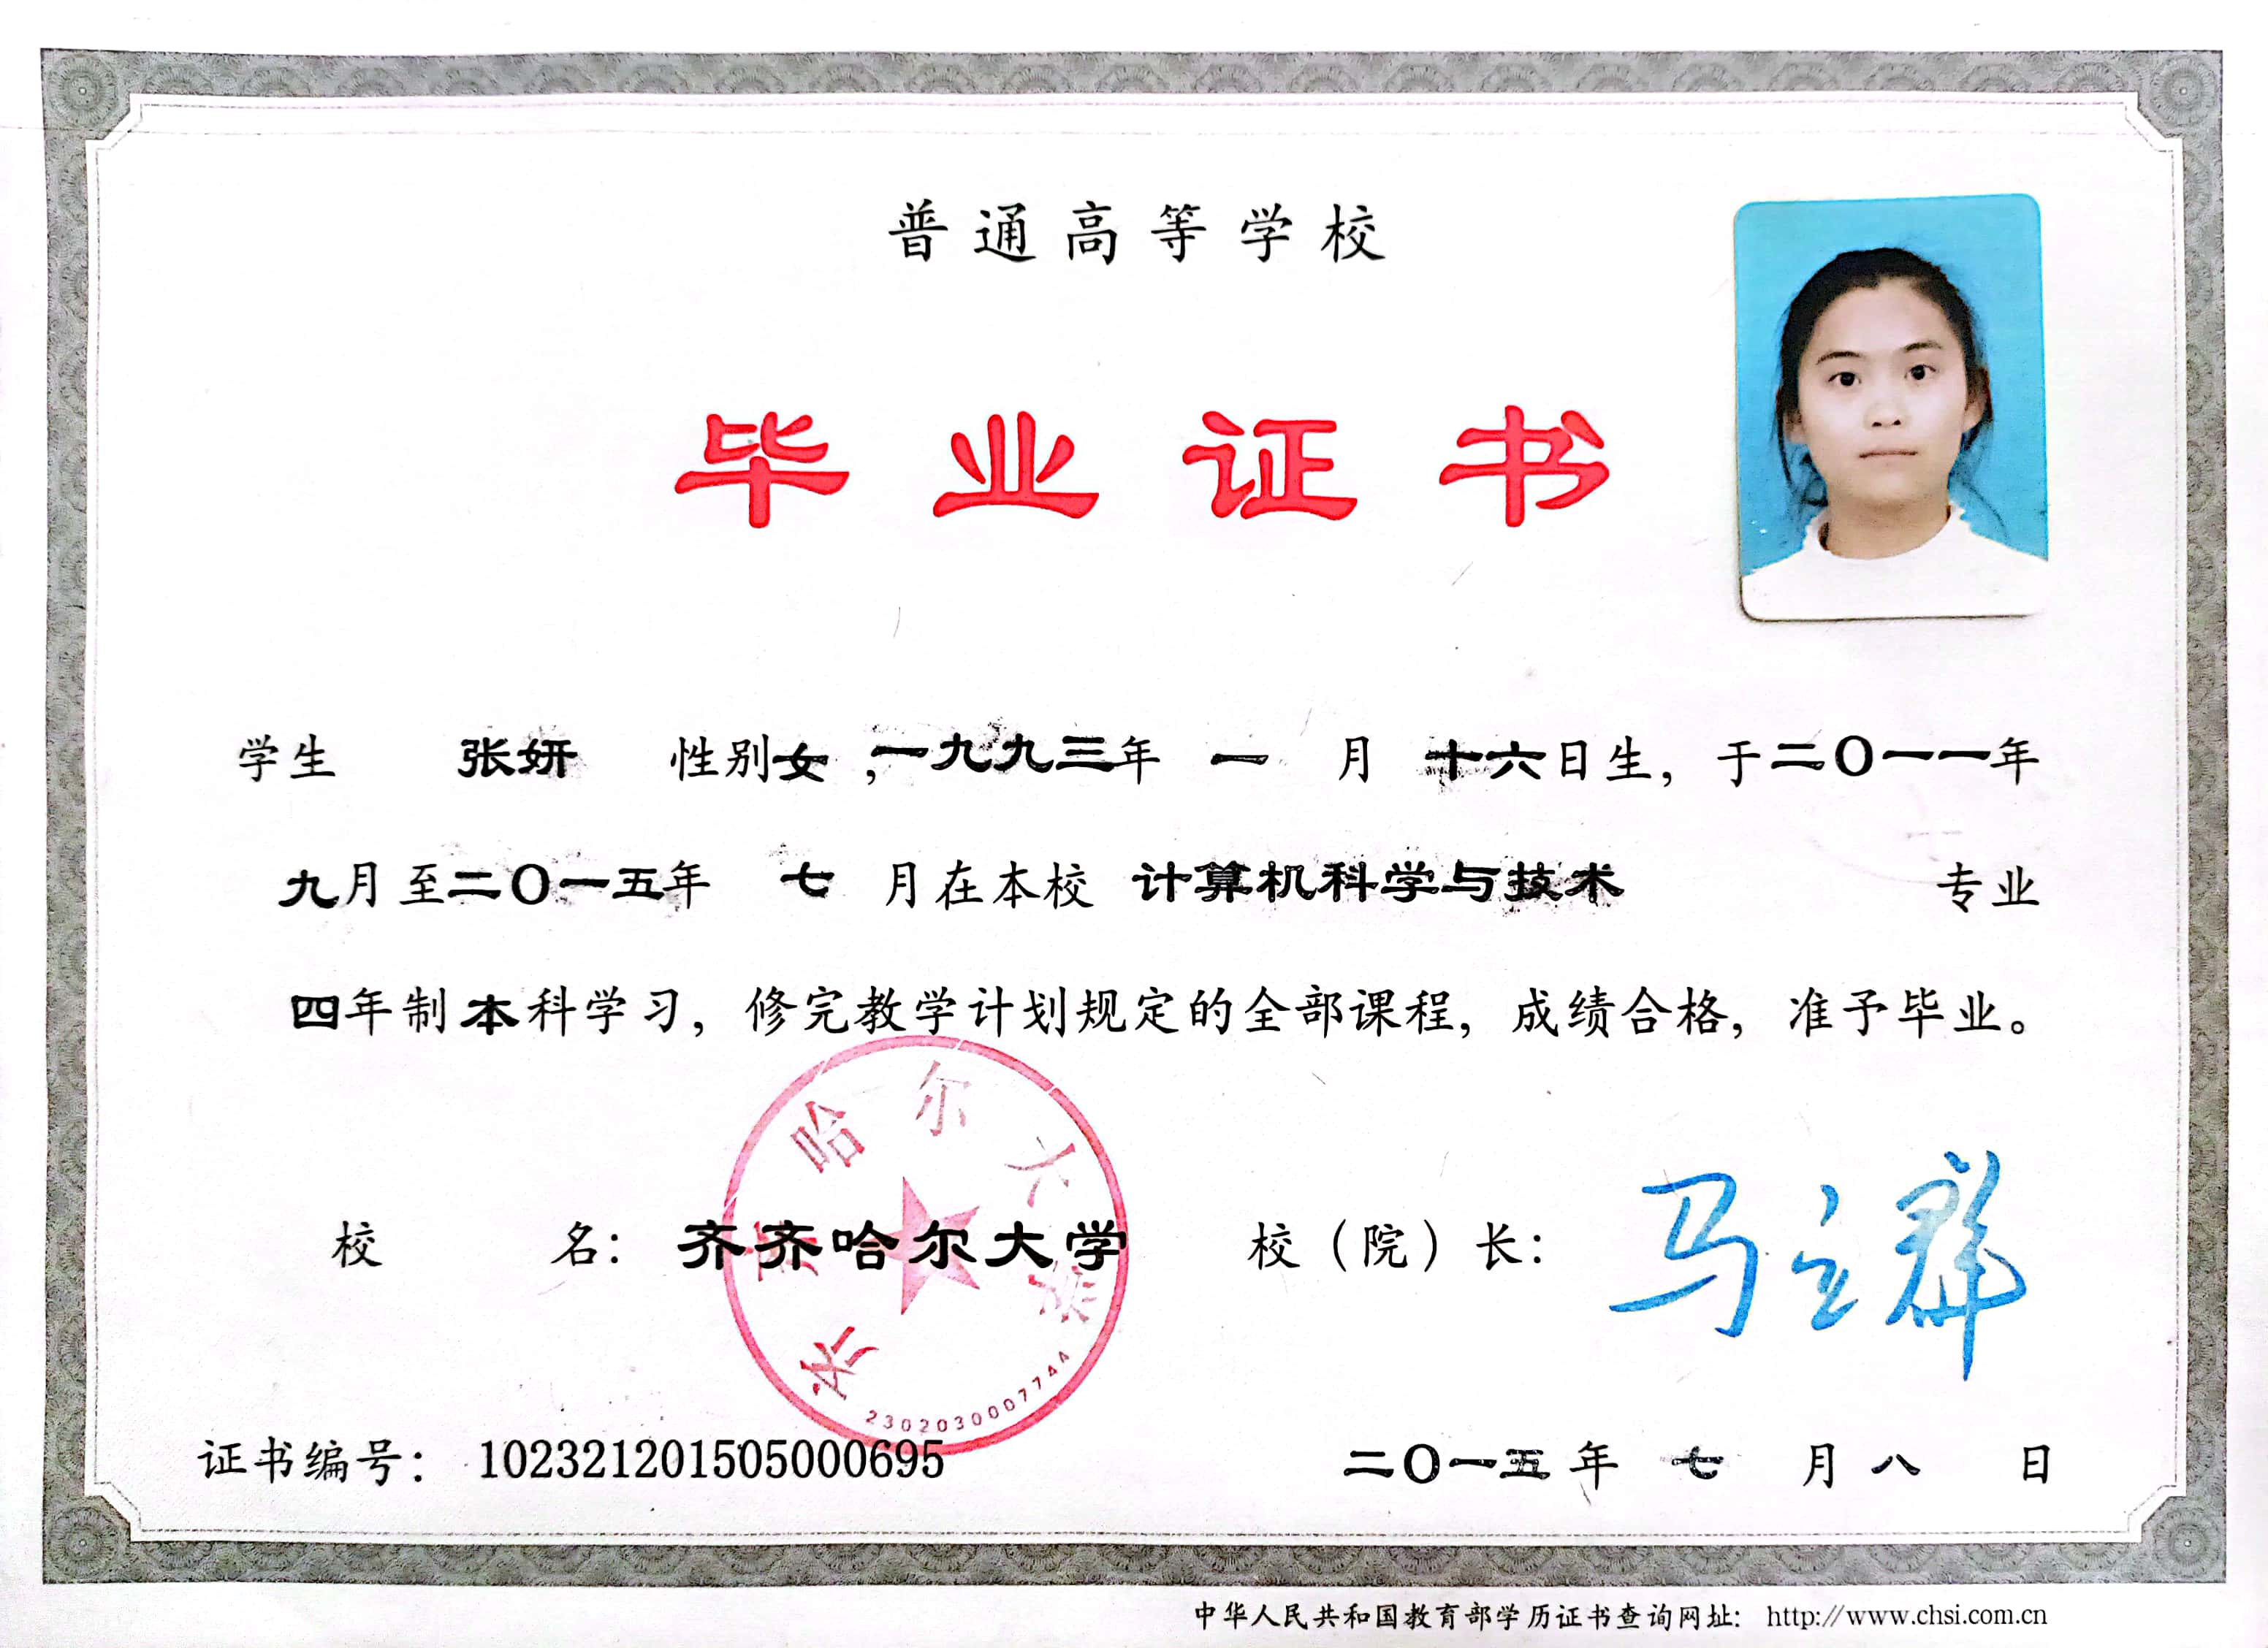 普通高等学校
毕业证书
学生 张妍 性别女，一九九三年 一 月 十六日生，于二〇一一年
九月至二〇一五年 七 月在本校 计算机科学与技术 专业
四年制本科学习，修完教学计划规定的全部课程，成绩合格，准予毕业。
校 名：齐齐哈尔大学 校（院）长：马立群
齐齐哈尔大学
2302030007744
证书编号： 102321201505000695 二〇一五年 七 月八 日
中华人民共和国教育部学历证书查询网址： http://www.chsi.com.cn